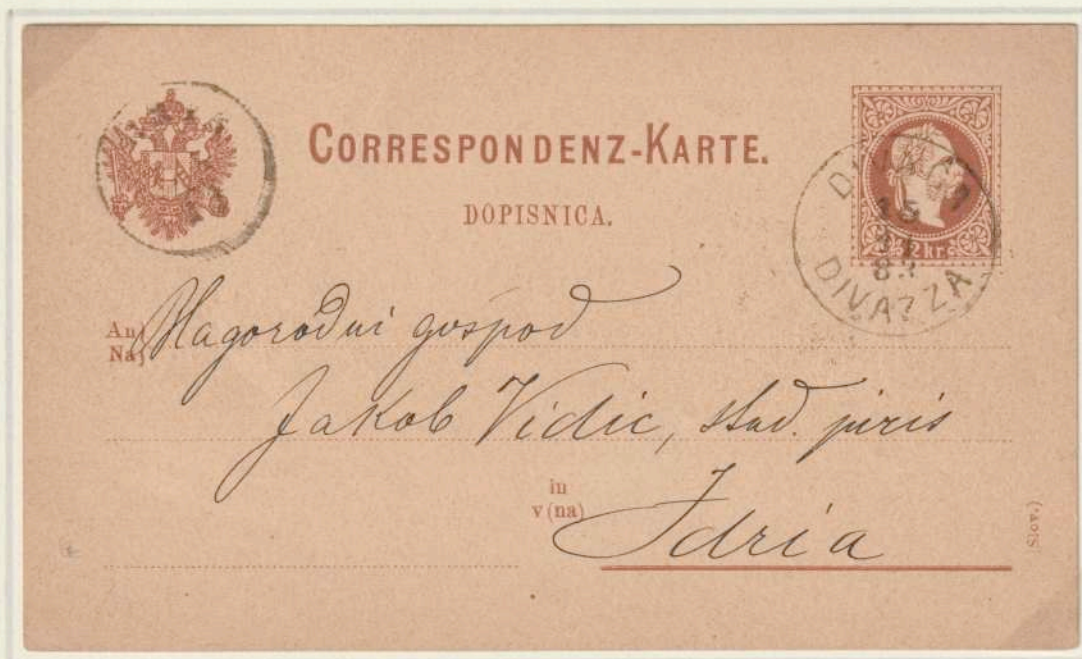 CORRESPONDENZ-KARTE.
DOPISNICA.
2 kr.
DIVAČA
15
83
DIVAZZA
An
Na
Blagorodni gospod
Jakob Vidic, stud. juris
in
v (na)
Idria
(Slov.)